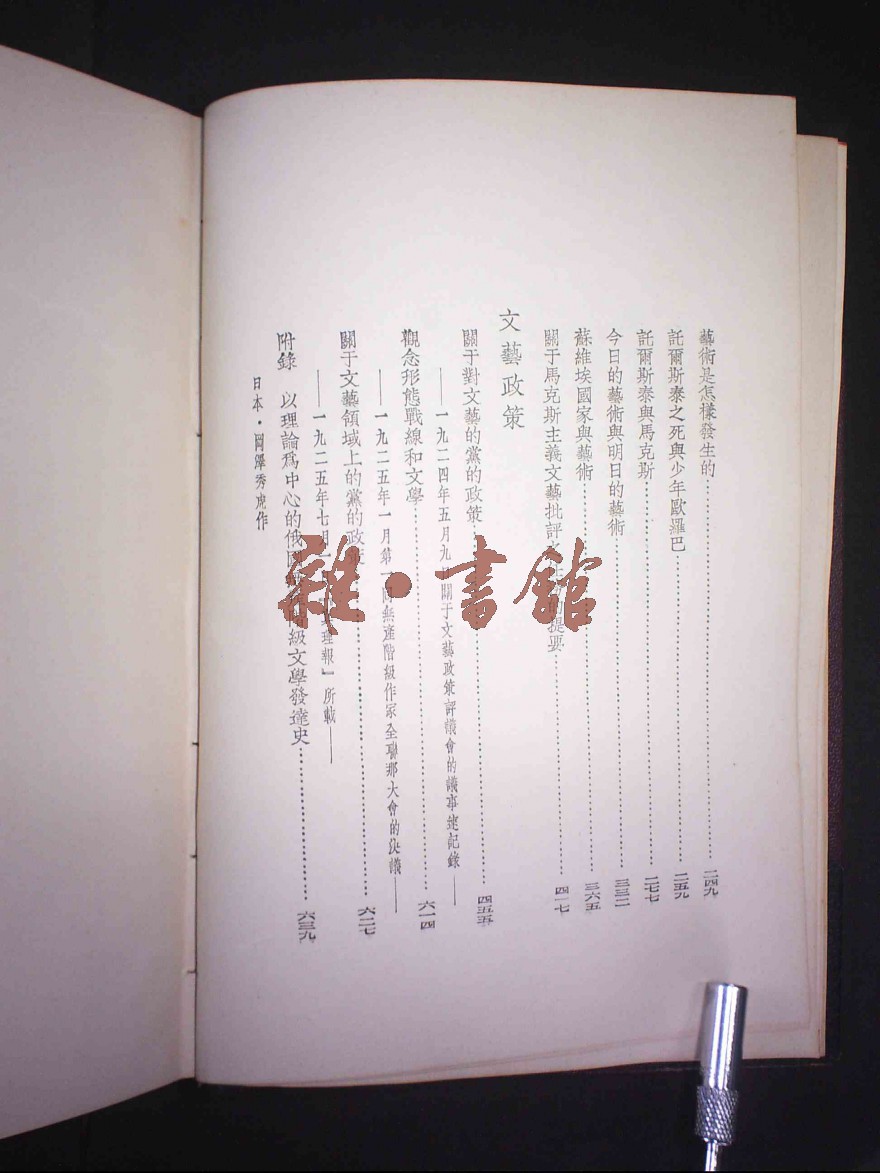 藝術是怎樣發生的……二四九
託爾斯泰之死與少年歐羅巴……二五九
託爾斯泰與馬克斯……二七七
今日的藝術與明日的藝術……三三二
蘇維埃國家與藝術……三六五
關于馬克斯主義文藝批評之任務的提要……四一七
文藝政策
關于對文藝的黨的政策……四五五
——一九二四年五月九日關于文藝政策評議會的議事速記錄——
觀念形態戰線和文學……六一四
——一九二五年一月第一回無產階級作家全聯邦大會的決議——
關于文藝領域上的黨的政策……六二七
——一九二五年七月一日理報』所載——
附錄 以理論爲中心的俄國階級文學發達史……六三九
日本·岡澤秀虎作
雜·書館